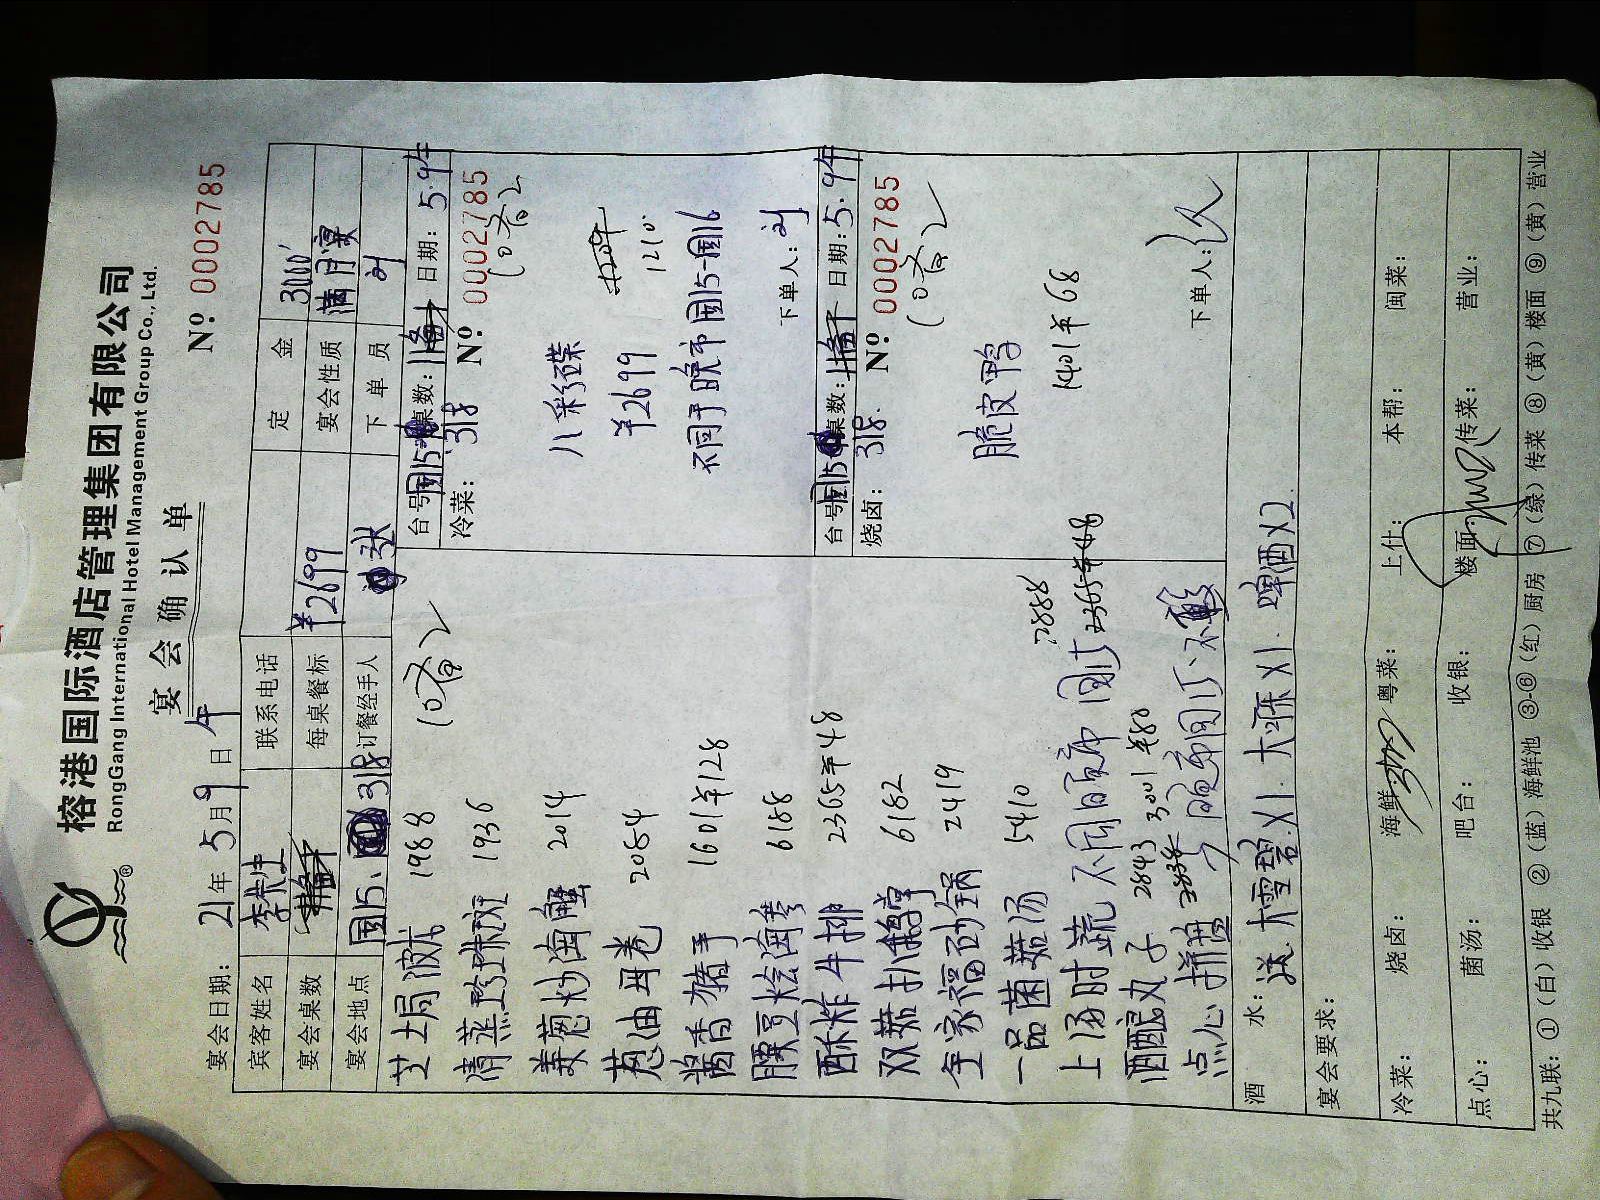 榕港国际酒店管理集团有限公司
RongGang International Hotel Management Group Co., Ltd.
宴会确认单
宴会日期: 21年5月9日 午
Nº 0002785
宾客姓名 联系电话 定金 3000
宴会桌数 每桌餐标 ¥2699 宴会性质 满月宴
宴会地点 国5、 318 订餐经手人 下单员 刘
芝士局波龙 1988
清蒸珍珠斑 1936
姜葱炒海蟹 2014
葱油母卷 2054
酱香猪手 1601 半128
腰豆烩海参 6188
酥炸牛排 2365 半48
双菇扒 6182
全家福砂锅 2419
一品菌菇汤 5410
上汤时蔬 不同晚市 国5 2365 半48
7888
酒酿丸子 2843 3001 半80
点心拼盘 晚市国5
台号 国15 桌数: 日期: 5.9午
冷菜: 318
Nº 0002785
八彩碟
¥2699 1210
不同于晚市国15-国16
下单人: 刘
台号 国15 桌数: 日期: 5.9午
烧卤: 318.
Nº 0002785
脆皮鸭
1401 半68
下单人:
酒水: 送大雪碧X1. 大 X1. 啤酒X2.
宴会要求:
冷菜: 烧卤: 海鲜: 粤菜: 上什: 本帮: 闽菜:
点心: 菌汤: 吧台: 收银: 楼面: 传菜: 营业:
共九联: ①(白)收银 ②(蓝)海鲜池 ③-⑥(红)厨房 ⑦(绿)传菜 ⑧(黄)楼面 ⑨(黄)营业